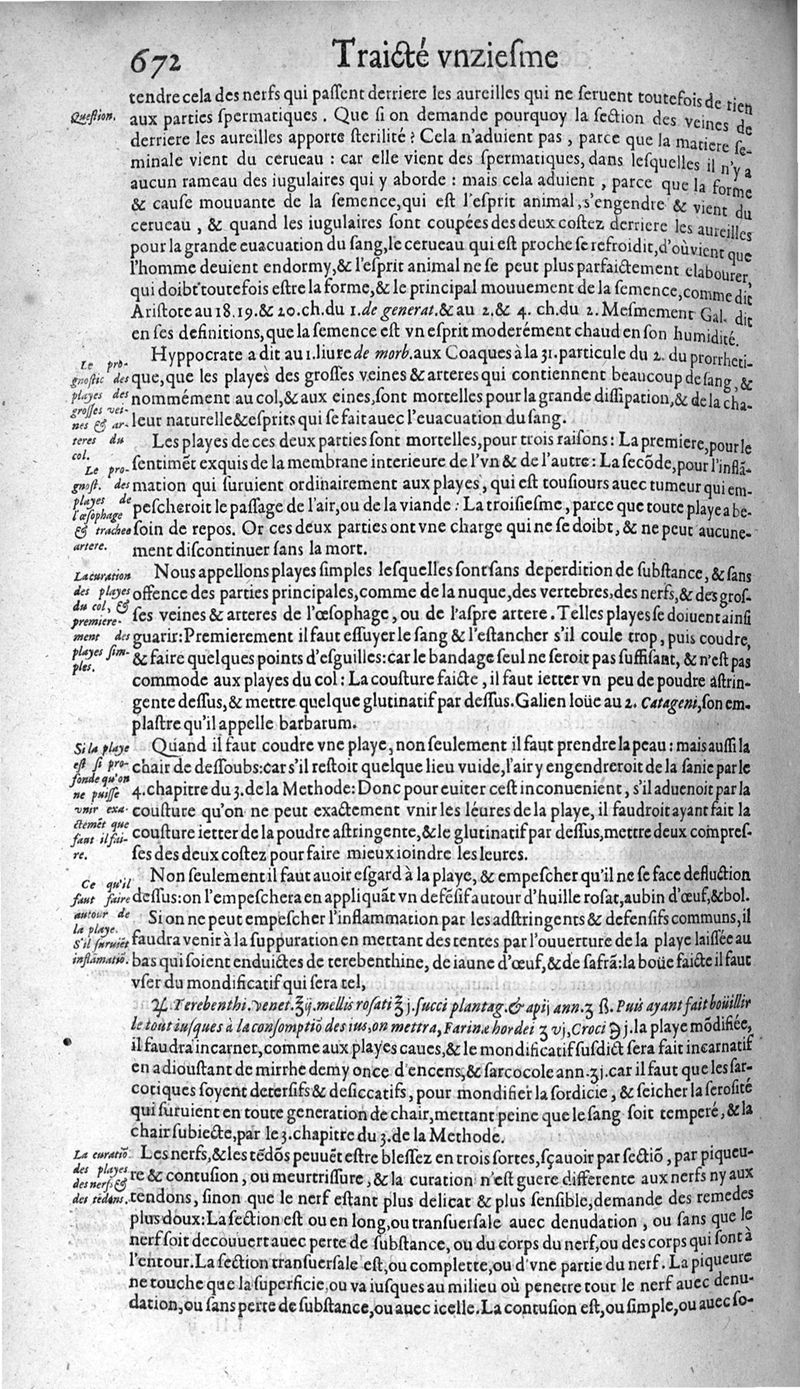 672 Traicté vnziesme
tendre cela des nerfs qui passent derriere les aureilles qui ne seruent toutefois de rien
Question.
aux parties spermatiques. Que si on demande pourquoy la section des veines de
derriere les aureilles apporte sterilité? Cela n'aduient pas, parce que la matiere se-
minale vient du cerueau: car elle vient des spermatiques, dans lesquelles il n'y a
aucun rameau des iugulaires qui y aborde: mais cela aduient, parce que la forme
& cause mouuante de la semence, qui est l'esprit animal, s'engendre & vient du
cerueau, & quand les iugulaires sont coupées des deux costez derriere les aureilles
pour la grande euacuation du sang, le cerueau qui est proche se refroidit, d'où vient que
l'homme deuient endormy, & l'esprit animal ne se peut plus parfaictement elabourer,
qui doibt toutefois estre la forme, & le principal mouuement de la semence, comme dit
Aristote au 18. 19. & 20. ch. du 1. de generat. & au 2. & 4. ch. du 2. Mesmement Gal. dit
en ses definitions, que la semence est vn esprit moderément chaud en son humidité.
Le pro-
gnostic des
playes des
grosses vei-
nes & ar-
teres du
col.
Hyppocrate a dit au 1. liure de morb. aux Coaques à la 31. particule du 2. du prorrheti-
que, que les playes des grosses veines & arteres qui contiennent beaucoup de sang, &
nommément au col, & aux eines, sont mortelles pour la grande dissipation, & de la cha-
leur naturelle & esprits qui se fait auec l'euacuation du sang.
Le pro-
gnost. des
playes de
l'œsophage
& trachee
artere.
Les playes de ces deux parties sont mortelles, pour trois raisons: La premiere, pour le
sentimẽt exquis de la membrane interieure de l'vn & de l'autre: La secõde, pour l'inflã-
mation qui suruient ordinairement aux playes, qui est tousiours auec tumeur qui em-
pescheroit le passage de l'air, ou de la viande: La troisiesme, parce que toute playe a be-
soin de repos. Or ces deux parties ont vne charge qui ne se doibt, & ne peut aucune-
ment discontinuer sans la mort.
La curation
des playes
du col, &
premiere-
ment des
playes sim-
ples.
Nous appellons playes simples lesquelles sont sans deperdition de substance, & sans
offence des parties principales, comme de la nuque, des vertebres, des nerfs, & des gros-
ses veines & arteres de l'œsophage, ou de l'aspre artere. Telles playes se doiuent ainsi
guarir: Premierement il faut essuyer le sang & l'estancher s'il coule trop, puis coudre,
& faire quelques points d'esguilles: car le bandage seul ne seroit pas suffisant, & n'est pas
commode aux playes du col: La cousture faicte, il faut ietter vn peu de poudre astrin-
gente dessus, & mettre quelque glutinatif par dessus. Galien loüe au 2. Catageni, son em-
plastre qu'il appelle barbarum.
Si la playe
est si pro-
fonde qu'on
ne puisse
vnir exa-
ctemẽt que
faut il fai-
re.
Quand il faut coudre vne playe, non seulement il faut prendre la peau: mais aussi la
chair de dessoubs: car s'il restoit quelque lieu vuide, l'air y engendreroit de la sanie par le
4. chapitre du 3. de la Methode: Donc pour euiter cest inconuenient, s'il aduenoit par la
cousture qu'on ne peut exactement vnir les léures de la playe, il faudroit ayant fait la
cousture ietter de la poudre astringente, & le glutinatif par dessus, mettre deux compres-
ses des deux costez pour faire mieux ioindre les leures.
Ce qu'il
faut faire
autour de
la playe.
Non seulement il faut auoir esgard à la playe, & empescher qu'il ne se face defluction
dessus: on l'empeschera en appliquãt vn defẽsif autour d'huille rosat, aubin d'œuf, & bol.
S'il suruiẽt
inflãmatiõ.
Si on ne peut empescher l'inflammation par les adstringents & defensifs communs, il
faudra venir à la suppuration en mettant des tentes par l'ouuerture de la playe laissée au
bas qui soient enduictes de terebenthine, de iaune d'œuf, & de safrã: la boüe faicte il faut
vser du mondificatif qui sera tel,
℞. Terebenthi. venet. ℥ij. mellis rosati ℥j. succi plantag. & apij ann. ʒ ß. Puis ayant fait boüillir
le tout iusques à la consomptiõ des ius, on mettra, Farinæ hordei ʒ vj, Croci ℈j. la playe mõdifiée,
il faudra incarner, comme aux playes caues, & le mondificatif susdict sera fait incarnatif
en adioustant de mirrhe demy once d'encens, & sarcocole ann. ʒj. car il faut que les sar-
cotiques soyent detersifs & desiccatifs, pour mondifier la sordicie, & seicher la serosité
qui suruient en toute generation de chair, mettant peine que le sang soit temperé, & la
chair subiecte, par le 3. chapitre du 3. de la Methode.
La curatiõ
des playes
des nerfs &
des tẽdons.
Les nerfs, & les tẽdõs peuuẽt estre blessez en trois sortes, sçauoir par sectiõ, par piqueu-
re & contusion, ou meurtrissure, & la curation n'est guere differente aux nerfs ny aux
tendons, sinon que le nerf estant plus delicat & plus sensible, demande des remedes
plus doux: La section est ou en long, ou transuersale auec denudation, ou sans que le
nerf soit decouuert auec perte de substance, ou du corps du nerf, ou des corps qui sont à
l'entour. La section transuersale est, ou complette, ou d'vne partie du nerf. La piqueure
ne touche que la superficie, ou va iusques au milieu où penetre tout le nerf auec denu-
dation, ou sans perte de substance, ou auec icelle. La contusion est, ou simple, ou auec so-